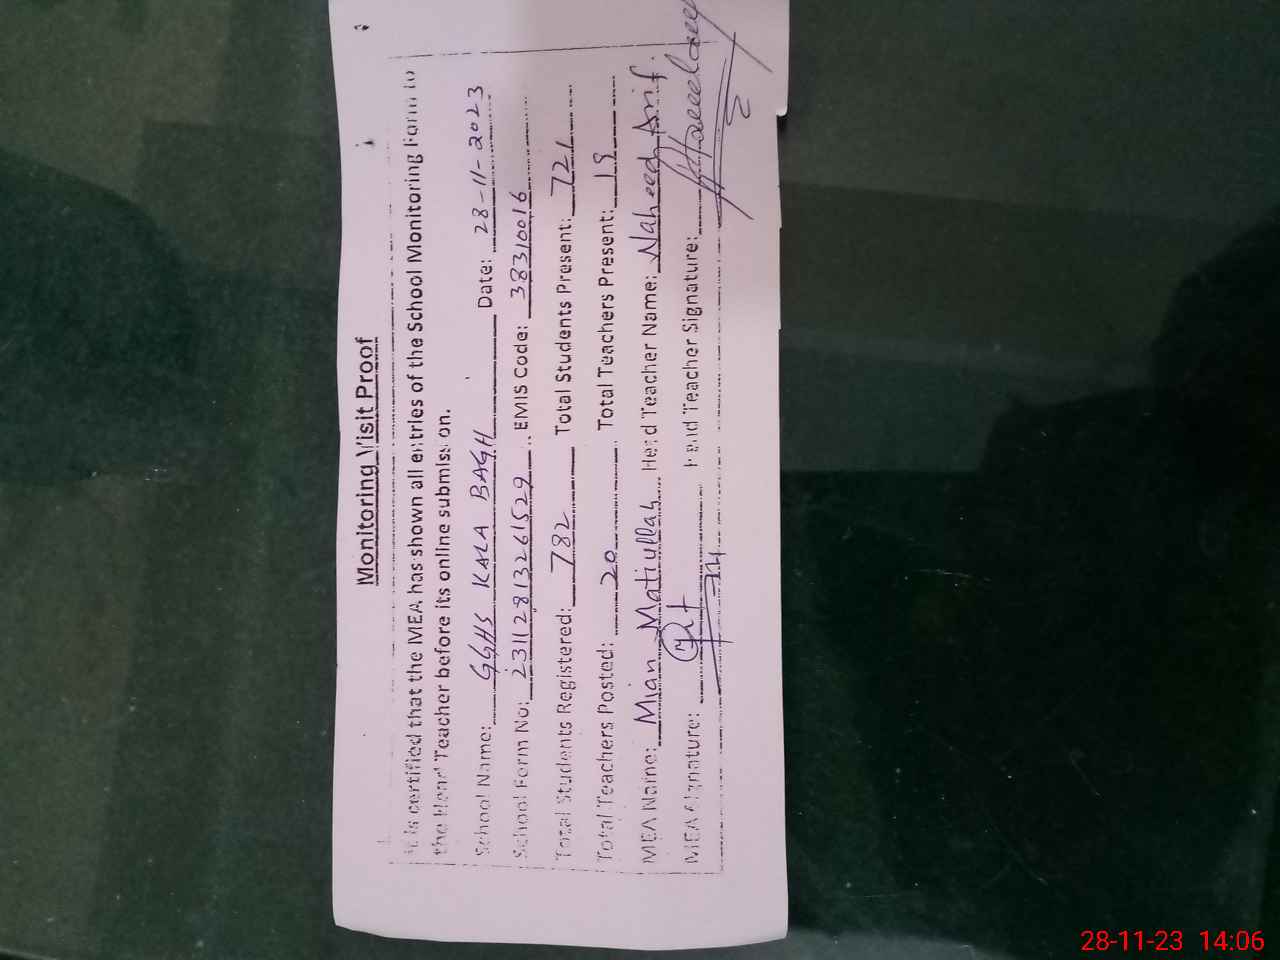 Monitoring Visit Proof
It is certified that the MEA has shown all entries of the School Monitoring Form to
the Head Teacher before its online submission.
School Name: GGHS KALA BAGH Date: 28-11-2023
School Form No: 23112813261529 EMIS Code: 38310016
Total Students Registered: 782 Total Students Present: 721
Total Teachers Posted: 20 Total Teachers Present: 19
MEA Name: Mian Matiullah Head Teacher Name: Naheed Arif.
MEA Signature: Head Teacher Signature:
28-11-23 14:06